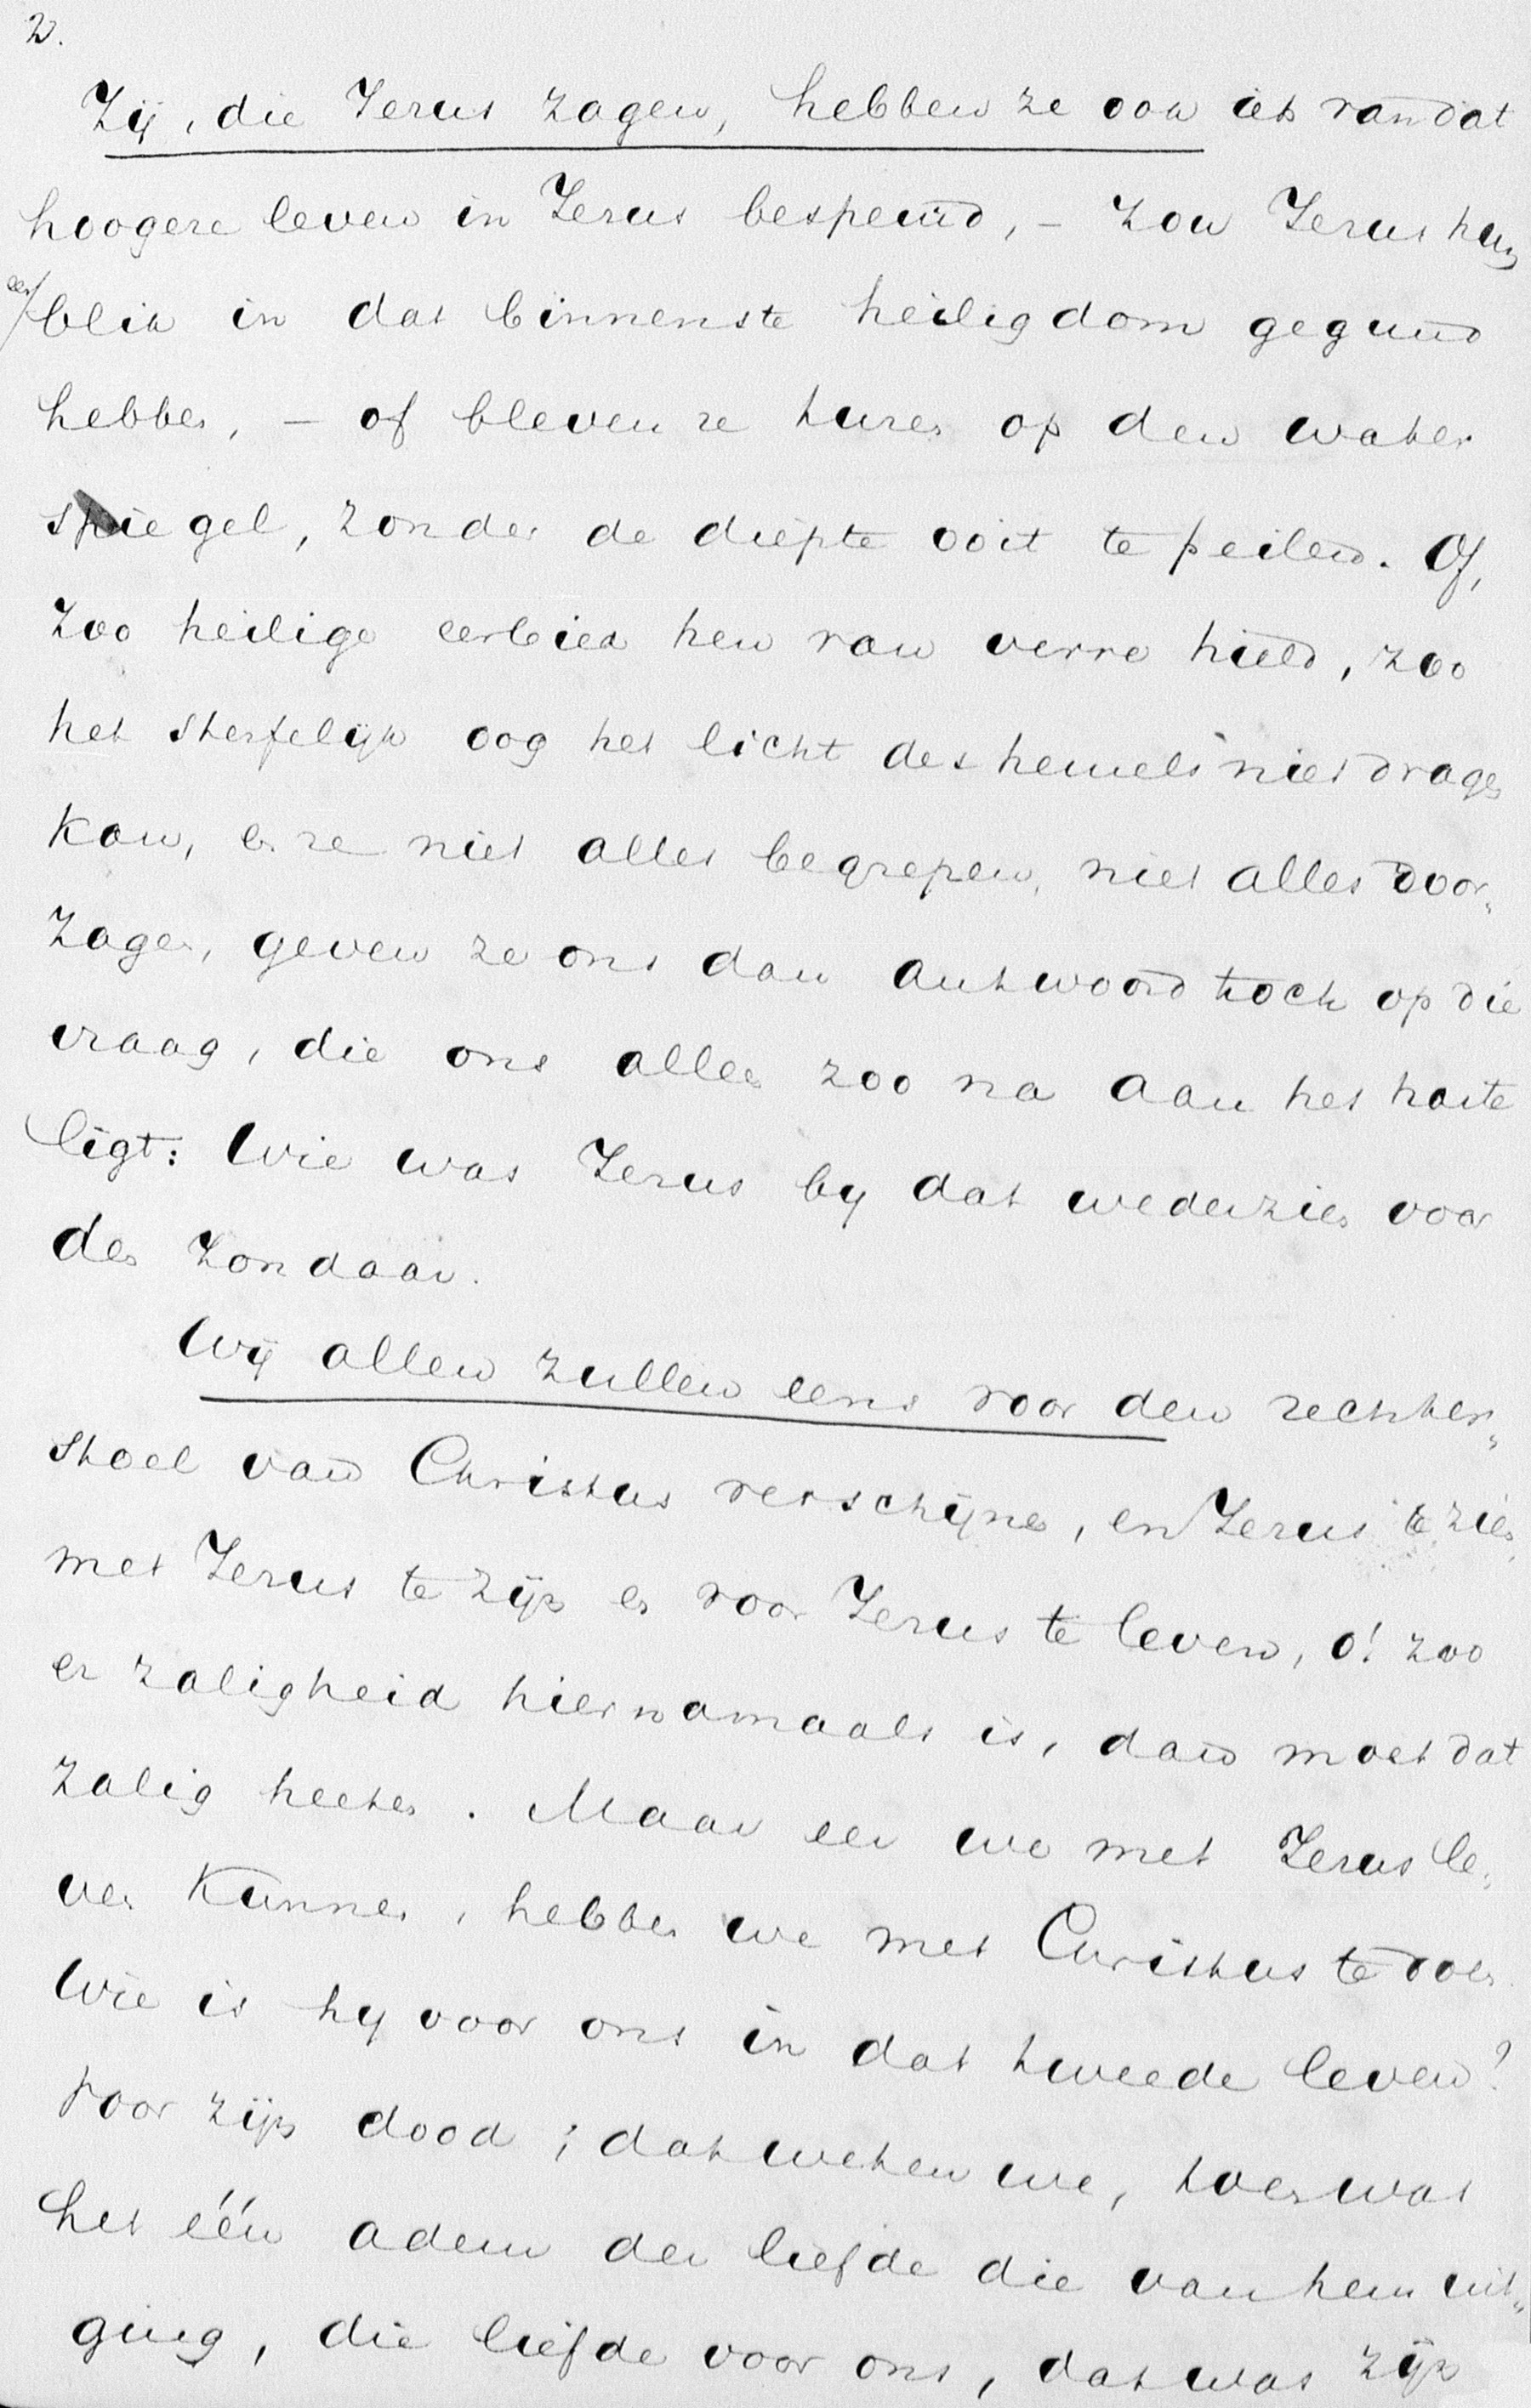 2.
Zij, die Jezus zagen, hebben ze ook iets van dat
hoogere leven in Jezus bespeurd, – zou Jezus hun
een
blik in dat binnenste heiligdom gegund
hebben, – of bleven ze turen op den water
spiegel, zonder de diepte ooit te peilen. Of,
zoo heilige eerbied hen van verre hield, zoo
het sterfelijk oog het licht des hemels niet dragen
kon, en ze niet alles begrepen, niet alles door„
zagen, geven ze ons dan antwoord toch op die
vraag, die ons allen zoo na aan het harte
ligt: Wie was Jezus by dat wederzien voor
den zondaar.
Wij allen zullen eens voor den rechter„
stoel van Christus verschijnen, en Jezus te zien,
met Jezus te zijn en voor Jezus te leven, o! zoo
er zaligheid hiernamaals is, dan moet dat
zalig heeten. Maar eer we met Jezus le„
ven kunnen, hebben we met Christus te doen.
Wie is hy voor ons in dat tweede leven?
Voor zijn dood; dat weten we, toen was
het één adem der liefde die van hem uit„
ging, die liefde voor ons, dat was zijn